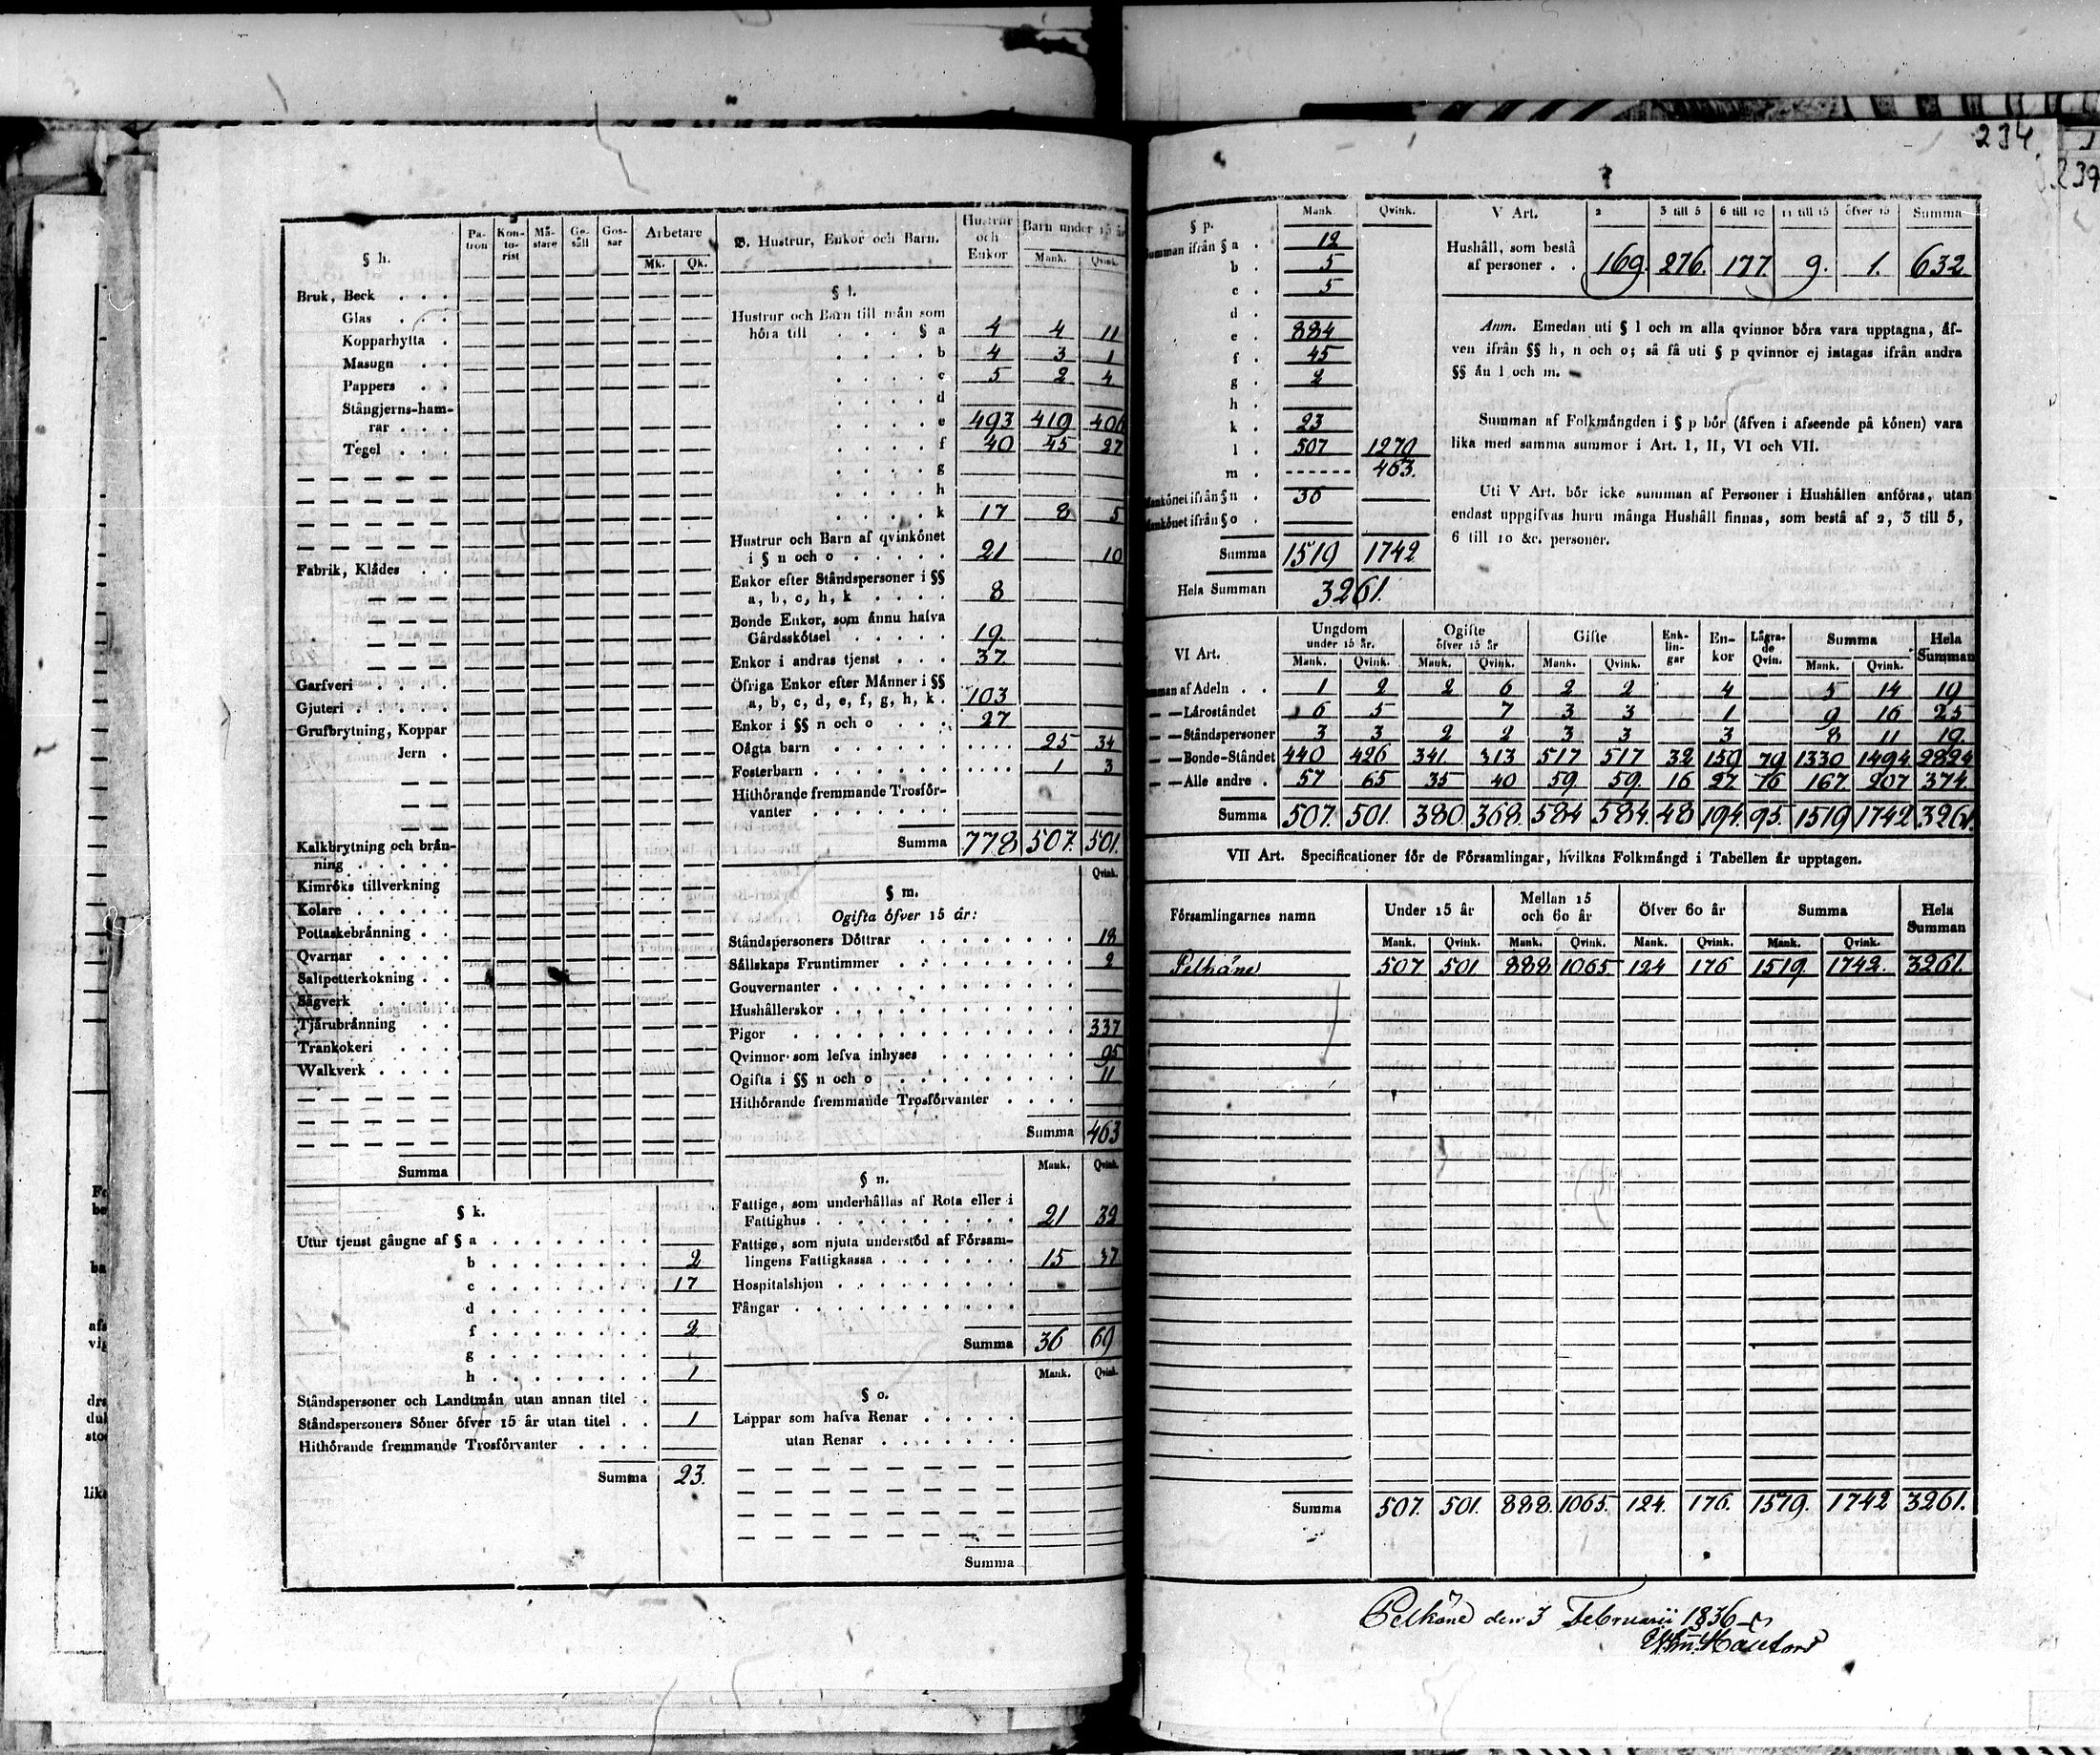 234
239
§ h.
Pa-tron Kon-to-rist Må-stare Ge-såll Gos-sar Arbetare
Mk. Qk.
Bruk, Beck . . .
Glas . . .
Kopparhytta .
Masugn . .
Pappers . .
Stångjerns-ham-
rar . . .
Tegel . . .
Fabrik, Klådes . .
Garfveri . . . .
Gjuteri . . . . .
Grufbrytning, Koppar
Jern .
Kalkbrytning och brån-
ning . . . . .
Kimróks tillverkning
Kolare . . . . .
Pottaskebrånning . .
Qvarnar . . . .
Saltpetterkokning . .
Sågverk . . . .
Tjårubrånning . .
Trankokeri . . .
Walkverk . . . .
Summa
§ k.
Utur tjenst gångne af § a . . . . . . . .
b . . . . . . . . 2
c . . . . . . . . 17
d . . . . . . . .
f . . . . . . . . 2
g . . . . . . . .
h . . . . . . . . 1
Ståndspersoner och Landtmån utan annan titel .
Ståndspersoners Sóner ófver 15 år utan titel . . 1
Hithórande fremmande Trosfórvanter . . . .
Summa 23.
B. Hustrur, Enkor och Barn. Hustrur och Enkor Barn under 15 år
Mank. Qvink.
§ l.
Hustrur och Barn till mån som
hóra till . . . § a 4 4 11
. . . . b 4 3 1
. . . . c 5 2 4
. . . . d
. . . . e 493 419 406
. . . . f 40 45 27
. . . . g
. . . . h
. . . . k 17 8 5
Hustrur och Barn af qvinkónet
i § n och o . . . . . 21 10
Enkor efter Ståndspersoner i §§
a, b, c, h, k . . . . 8
Bonde Enkor, som ånnu hafva
Gårdsskótsel . . . . . 19.
Enkor i andras tjenst . . . 37
Öfriga Enkor efter Månner i §§
a, b, c, d, e, f, g, h, k . 103
Enkor i §§ n och o . . . 27
Oågta barn . . . . . . . . . . 25 34
Fosterbarn . . . . . . . . . . . 1 3
Hithórande fremmande Trosfór-
vanter . . . . . .
Summa 778 507. 501.
Qvink.
§ m.
Ogifta ófver 15 år:
Ståndspersoners Dóttrar . . . . . . . . 18
Sållskaps Fruntimmer . . . . . . . . . 2
Gouvernanter . . . . . . . . . . . .
Hushållerskor . . . . . . . . . . . .
Pigor . . . . . . . . . . . . . 337
Qvinnor som lefva inhyses . . . . . . . 95
Ogifta i §§ n och o . . . . . . . . . 11
Hithórande fremmande Trosfórvanter . . . .
Summa 463
Mank. Qvink.
§ n.
Fattige, som underhållas af Rota eller i
Fattighus . . . . . . . . . . 21 32
Fattige, som njuta understód af Fórsam-
lingens Fattigkassa . . . . . . . 15 37
Hospitalshjon . . . . . . . . .
Fångar . . . . . . . . . . .
Summa 36 69
Mank. Qvink.
§ o.
Lappar som hafva Renar . . . . .
utan Renar . . . . . . .
Summa
§ p. Mank. Qvink.
Summan ifrån § a . 12
b . 5
c . 5
d .
e . 884
f . 45
g . 2
h .
k . 23
l . 507 1279
m . - - - - - - 463.
Mankónet ifrån § n . 36
Mankónet ifrån § o .
Summa 1519 1742
Hela Summan 3261.
V Art. 2 3 till 5 6 till 10 11 till 15 öfver 15 Summa
Hushåll, som bestå
af personer . . 169. 276. 177 9. 1. 632
Anm. Emedan uti § l och m alla qvinnor bóra vara upptagna, åf-
ven ifrån §§ h, n och o; så få uti § p qvinnor ej intagas ifrån andra
§§ ån l och m.
Summan af Folkmångden i § p bór (åfven i afseende på kónen) vara
lika med samma summor i Art. I, II, VI och VII.
Uti V Art. bór icke summan af Personer i Hushållen anfóras, utan
endast uppgifvas huru många Hushåll finnas, som bestå af 2, 3 till 5,
6 till 10 &c. personer.
VI Art. Ungdom under 15 år. Ogifte öfver 15 år Gifte Enk-lin-gar En-kor Lågra-de Qvin. Summa Hela Summan
Mank. Qvink. Mank. Qvink. Mank. Qvink. Mank. Qvink.
Summan af Adeln . . 1 2 2 6 2 2 4 5 14 19
— — Låroståndet 6 5 7 3 3 1 9 16 25
— — Ståndspersoner 3 3 2 2 3 3 3 8 11 19.
— — Bonde-Ståndet 440 426 341. 313 517 517 32 159 79 1330 1494 2824
— — Alle andre . 57 65 35 40 59. 59. 16 27 16 167. 207 374.
Summa 507. 501. 380 368. 584 584. 48 194. 95. 1519 1742 3261.
VII Art. Specificationer fór de Fórsamlingar, hvilkas Folkmångd i Tabellen år upptagen.
Fórsamlingarnes namn Under 15 år Mellan 15 och 60 år Öfver 60 år Summa Hela Summan
Mank. Qvink. Mank. Qvink. Mank. Qvink. Mank. Qvink.
Pelkäne 507 501 888 1065 124 176 1519. 1742. 3261.
Summa 507. 501. 888. 1065. 124. 176. 1519. 1742 3261.
Pelkäne den 3 Februarii 1836